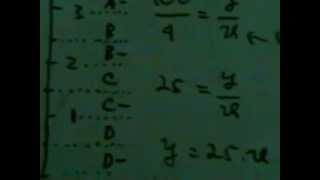 3 A-
B
2 B-
C
C-
1
D
D-
100/4 = y/x
25 = y/x
y = 25.x